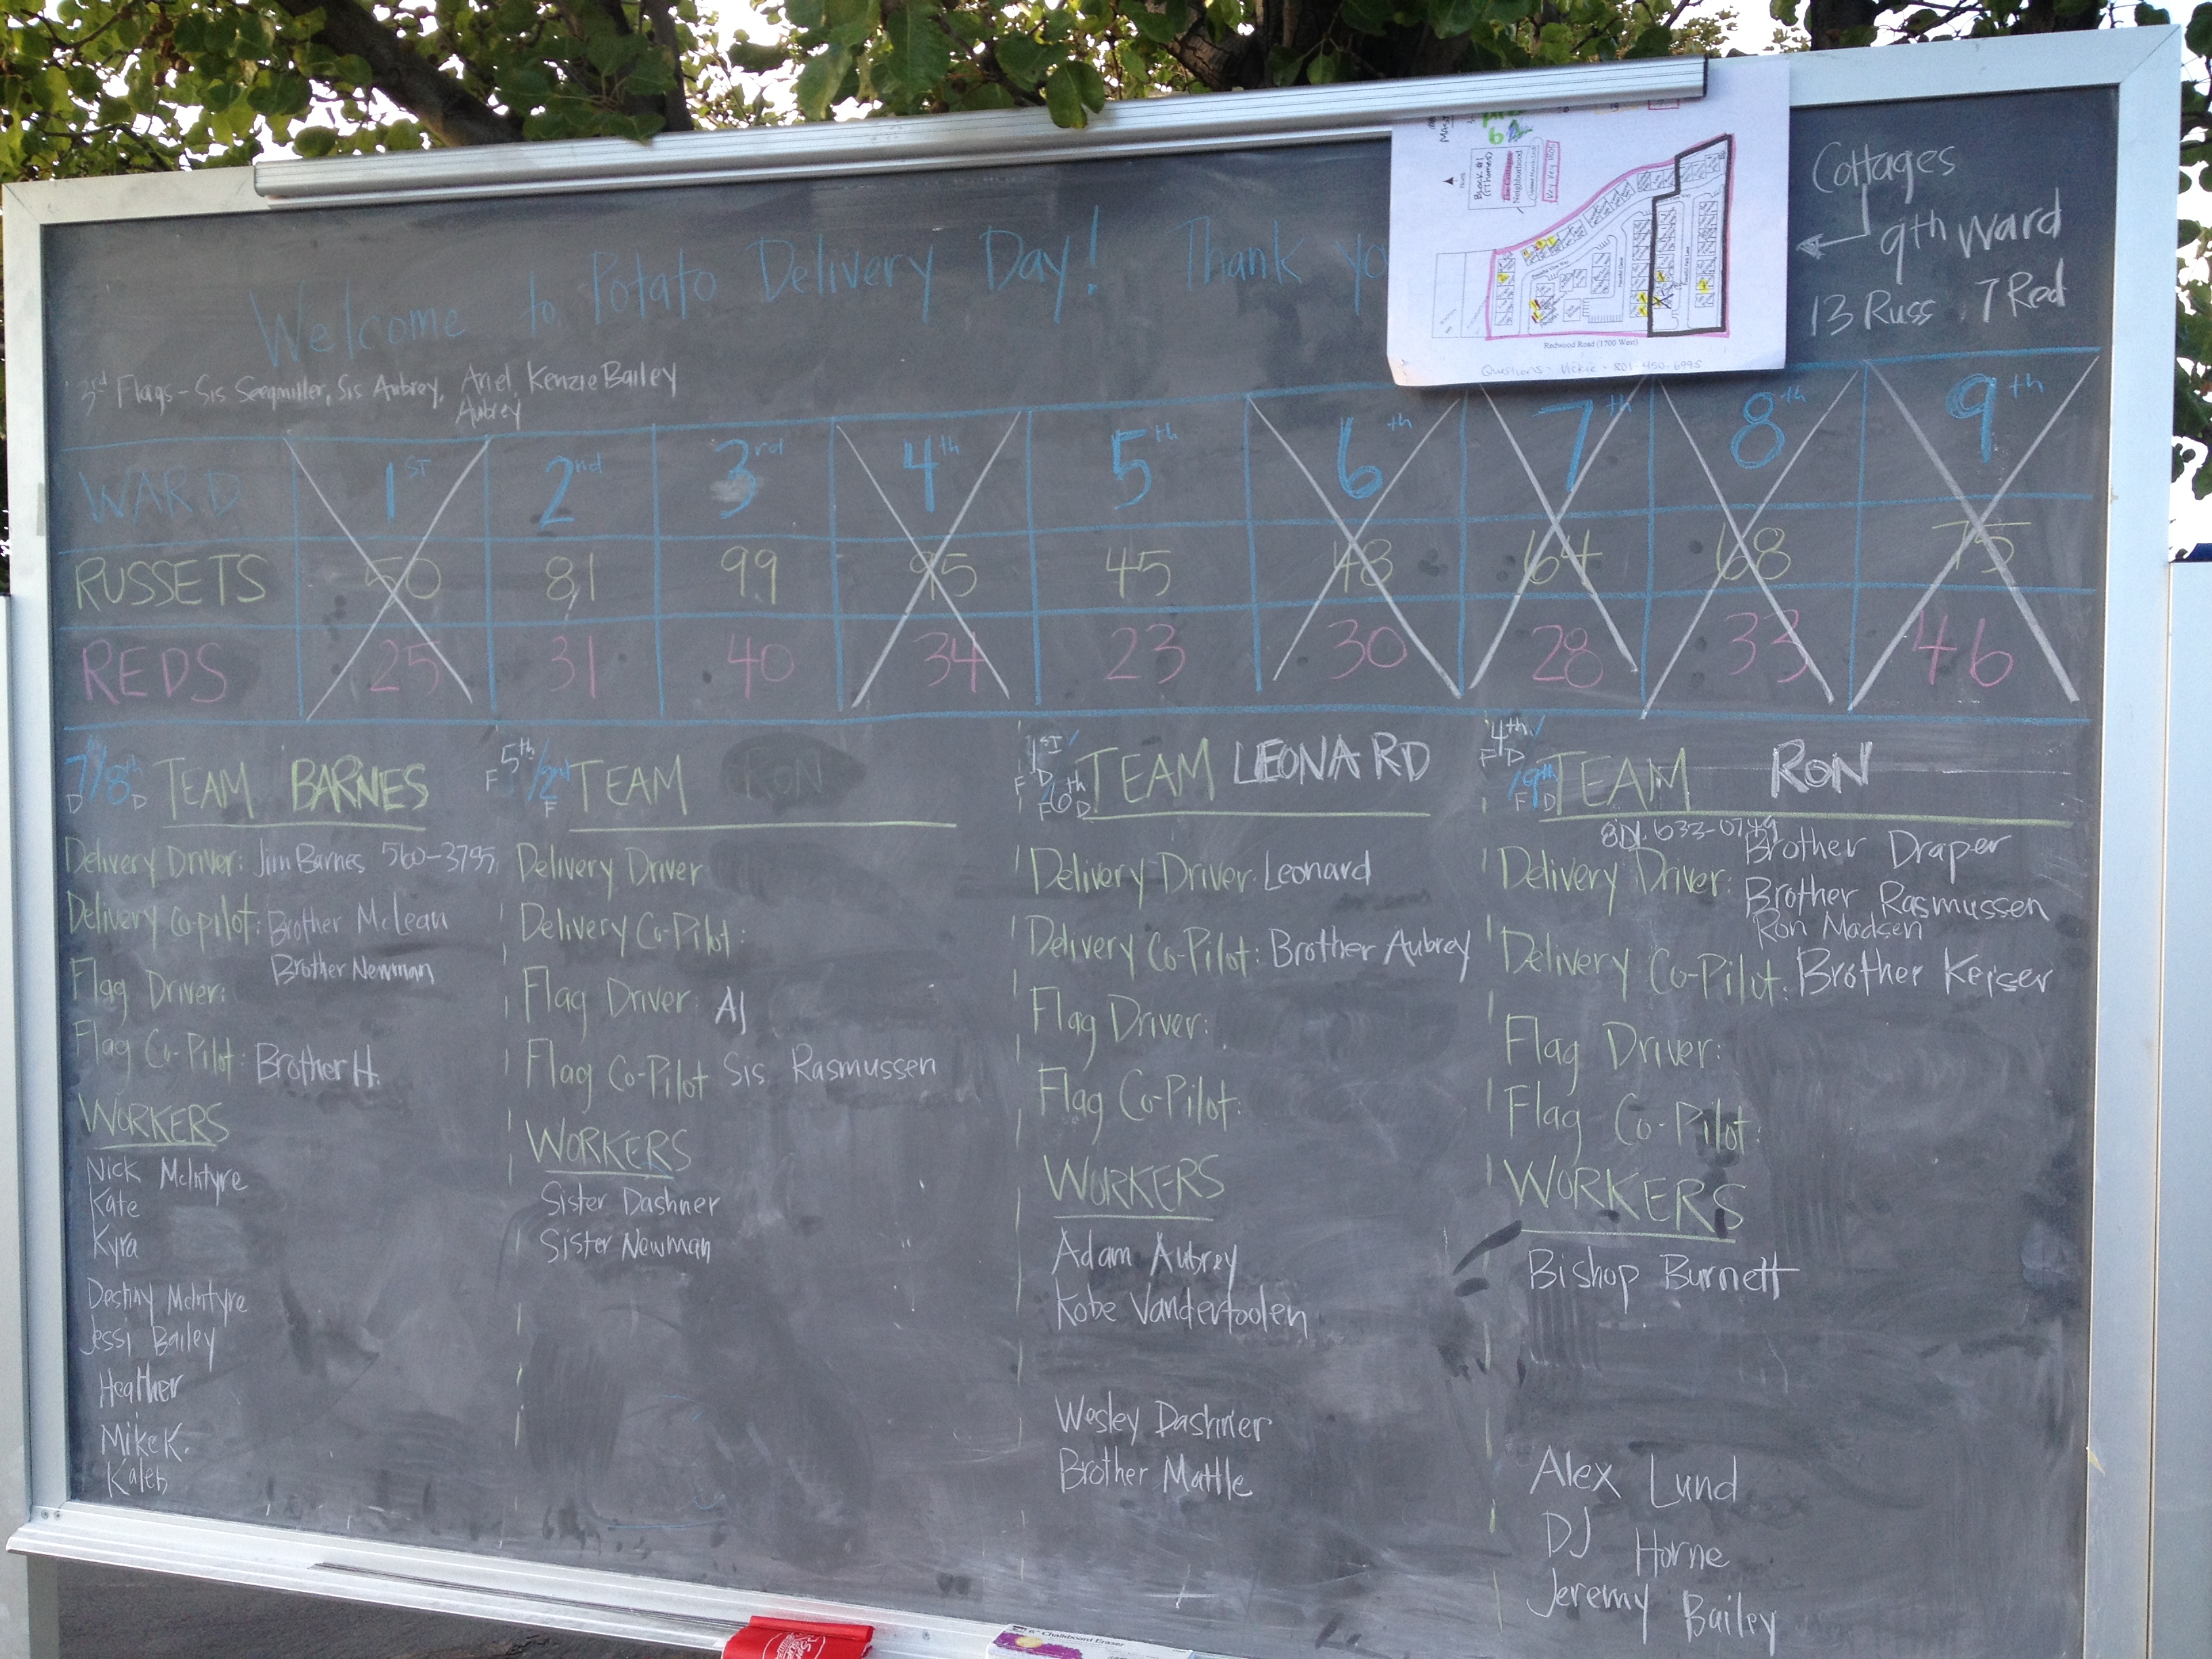 Welcome to Potato Delivery Day! Thank yo
Cottages
9th Ward
13 Russ 7 Red
North
Block #1
(TThomas)
The Cottages
Neighborhood
Redwood Road (1700 West)
Questions - Vickie - 801-450-6995
3rd Flags - Sis Seegmiller, Sis Aubrey, Ariel Aubrey, Kenzie Bailey
WARD 1ST 2nd 3rd 4th 5th 6th 7th 8th 9th
RUSSETS 50 81 99 95 45 48 64 68 75
REDS 25 31 40 34 23 30 28 33 46
7th/8th D D TEAM BARNES
Delivery Driver: Jim Barnes 560-3795
Delivery Co-pilot: Brother McLean
Brother Newman
Flag Driver:
Flag Co-Pilot: Brother H.
WORKERS
Nick McIntyre
Kate
Kyra
Destiny McIntyre
Jessi Bailey
Heather
Mike K.
Kaleb
F 5th/2nd F TEAM RON
Delivery Driver
Delivery Co-Pilot:
Flag Driver: AJ
Flag Co-Pilot Sis Rasmussen
WORKERS
Sister Dashner
Sister Newman
1ST/ F D 6th F D TEAM LEONARD
Delivery Driver: Leonard
Delivery Co-Pilot: Brother Aubrey
Flag Driver:
Flag Co-Pilot:
WORKERS
Adam Aubrey
Kobe Vandertoolen
Wesley Dashner
Brother Mattle
4th/ F D /9th F D TEAM RON
801 633-0749
Delivery Driver: Brother Draper
Brother Rasmussen
Ron Madsen
Delivery Co-Pilot: Brother Keiser
Flag Driver:
Flag Co-Pilot:
WORKERS
Bishop Burnett
Alex Lund
DJ Horne
Jeremy Bailey
6" Chalkboard Eraser